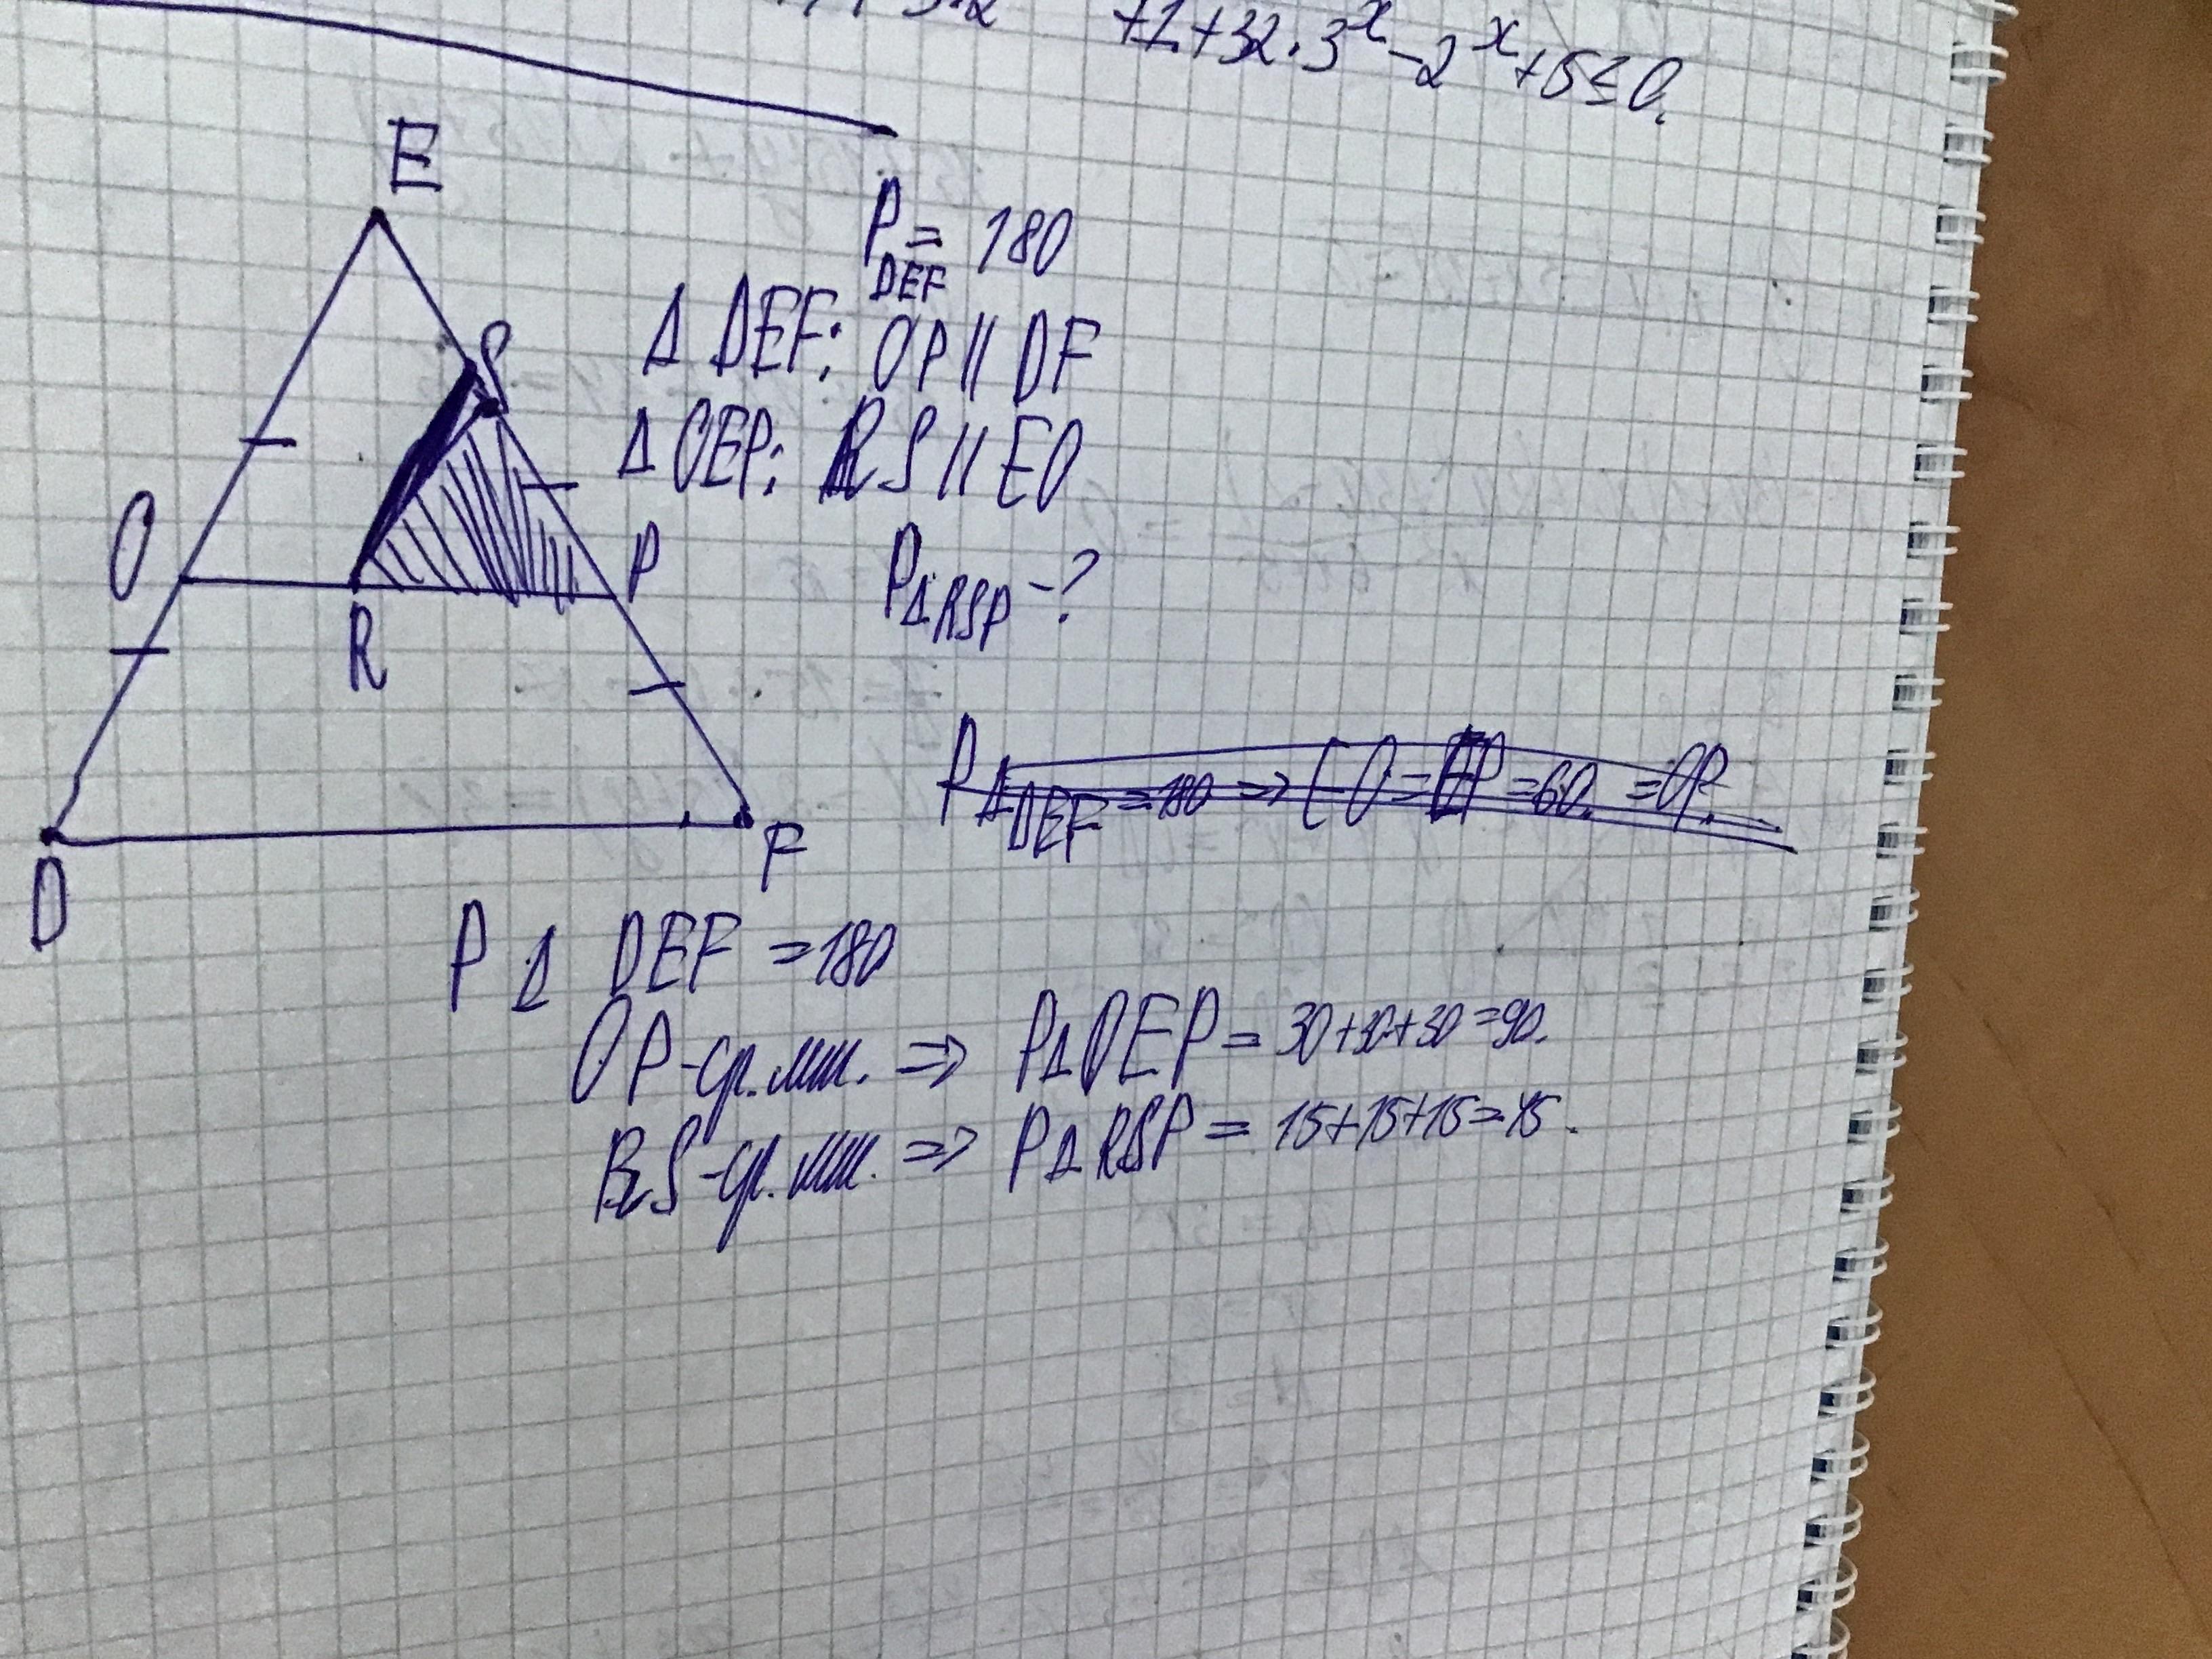 +1+32·3^x-2^x+5≤0.
E
P_DEF = 180
Δ DEF: OP || DF
S
Δ OEP: RS || EO
O
P
P_ΔRSP -?
R
P_ΔDEF = 180 => EO = EP = 60. = OP.
D
F
P Δ DEF = 180
OP-ср. лин. => PΔOEP = 30+30+30=90.
RS-ср. лин. => PΔRSP = 15+15+15=45.